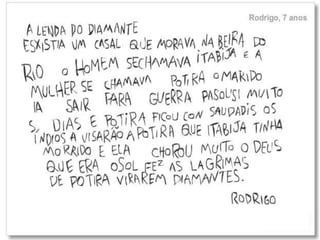 Rodrigo, 7 anos
A LENDA DO DIAMANTE
ESXISTIA UM CASAL QUE MORAVA NA BEIRA DO
RIO O HOMEM SECHAMAVA ITABIJA E A
MULHER SE CHAMAVA POTIRA O MARIDO
IA SAIR PARA GUERRA PASOUSI MUITO
S DIAS E POTIRA FICOU CON SAUDADIS OS
ÍNDIOS A VISARÃO A POTIRA QUE ITABIJA TINHA
MORRIDO E ELA CHOROU MUITO O DEUS
QUE ERA OSOL FEZ AS LAGRIMAS
DE POTIRA VIRAREM DIAMANTES.
RODRIGO